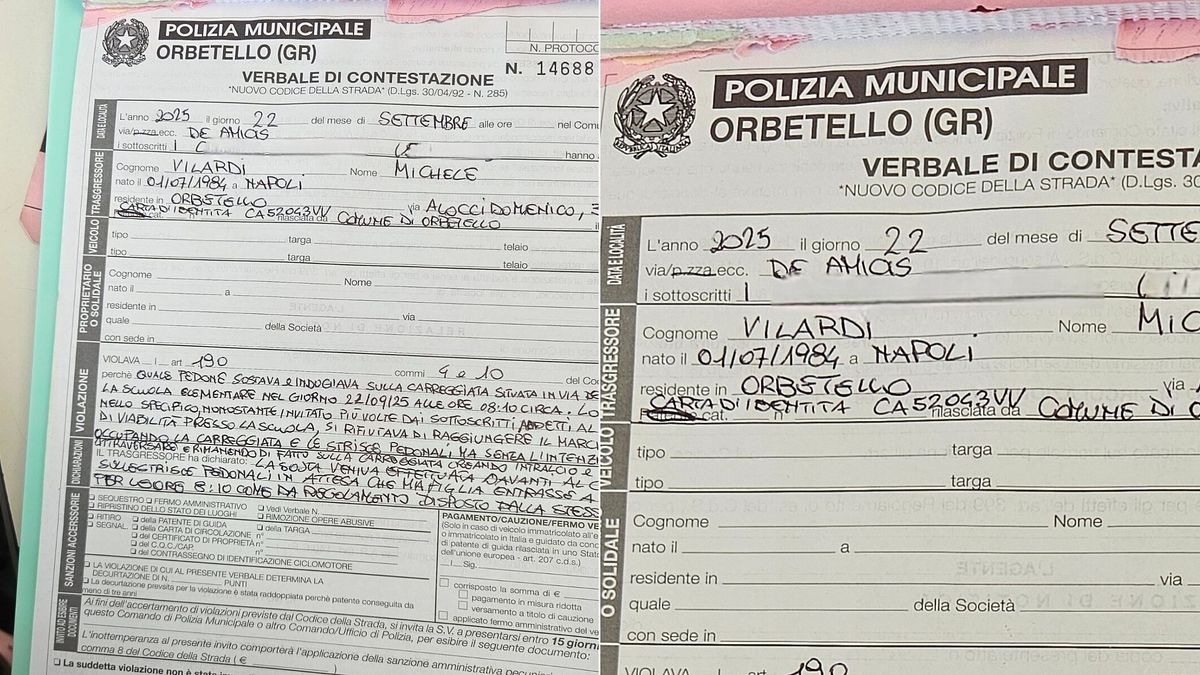 POLIZIA MUNICIPALE
ORBETELLO (GR)
N. PROTOCO
N. 14688
VERBALE DI CONTESTAZIONE
"NUOVO CODICE DELLA STRADA" (D.Lgs. 30/04/92 - N. 285)
DATA E LOCALITÀ
L'anno 2025 il giorno 22 del mese di SETTEMBRE alle ore nel Comu
via/p.zza ecc. DE AMICIS
i sottoscritti hanno
TRASGRESSORE
Cognome VILARDI Nome MICHELE
nato il 01/07/1984 a NAPOLI
residente in ORBETELLO via ALOCCI DOMENICO, 3
cat. CARTA D'IDENTITÀ CA52043VV rilasciata da COMUNE DI ORBETELLO
VEICOLO
tipo targa telaio
tipo targa telaio
PROPRIETARIO O SOLIDALE
Cognome Nome
nato il a
residente in via
quale della Società
con sede in
VIOLAZIONE
VIOLAVA l art. 190 commi 4 e 10 del Co
perchè QUALE PEDONE SOSTAVA E INDUGIAVA SULLA CARREGGIATA SITUATA IN VIA DE
LA SCUOLA ELEMENTARE NEL GIORNO 22/09/25 ALLE ORE 08:10 CIRCA. LO
NELLO SPECIFICO, NONOSTANTE INVITATO PIÙ VOLTE DAI SOTTOSCRITTI, ADDETTI AL
DI VIABILITÀ PRESSO LA SCUOLA, SI RIFIUTAVA DI RAGGIUNGERE IL MARCI
OCCUPANDO LA CARREGGIATA E LE STRISCE PEDONALI, MA SENZA L'INTENZ
ATTRAVERSARE E RIMANENDO DI FATTO SULLA CARREGGIATA CREANDO INTRALCIO E
DICHIARAZIONI
IL TRASGRESSORE ha dichiarato: LA SOSTA VENIVA EFFETTUATA DAVANTI AL C
SULLE STRISCE PEDONALI IN ATTESA CHE MIA FIGLIA ENTRASSE A
PER LE ORE 8:10 COME DA REGOLAMENTO DISPOSTO DALLA STESS
SANZIONI ACCESSORIE
SEQUESTRO FERMO AMMINISTRATIVO Vedi Verbale N.
RIPRISTINO DELLO STATO DEI LUOGHI RIMOZIONE OPERE ABUSIVE
RITIRO della PATENTE DI GUIDA della TARGA
SEGNAL. della CARTA DI CIRCOLAZIONE n°
del CERTIFICATO DI PROPRIETÀ n°
del C.Q.C./CAP. n°
del CONTRASSEGNO DI IDENTIFICAZIONE CICLOMOTORE
LA VIOLAZIONE DI CUI AL PRESENTE VERBALE DETERMINA LA
DECURTAZIONE DI N. PUNTI
La decurtazione prevista per la violazione è stata raddoppiata perchè patente conseguita da
meno di tre anni
PAGAMENTO/CAUZIONE/FERMO VE
(Solo in caso di veicolo immatricolato all'e
o immatricolato in Italia e guidato da cond
di patente di guida rilasciata in uno Stato
dell'unione europea - art. 207 c.d.s.)
l Sig.
corrisposto la somma di €
pagamento in misura ridotta
versamento a titolo di cauzione
applicato fermo amministrativo del v
INVITO AD ESIBIRE DOCUMENTI
Ai fini dell'accertamento di violazioni previste dal Codice della Strada, si invita la S.V. a presentarsi entro 15 giorni
questo Comando di Polizia Municipale o altro Comando/Ufficio di Polizia, per esibire il seguente documento:
L'inottemperanza al presente invito comporterà l'applicazione della sanzione amministrativa pecuniar
comma 8 del Codice della Strada ( €
La suddetta violazione non è stata
POLIZIA MUNICIPALE
ORBETELLO (GR)
VERBALE DI CONTESTA
"NUOVO CODICE DELLA STRADA" (D.Lgs. 30
DATA E LOCALITÀ
L'anno 2025 il giorno 22 del mese di SETTE
via/p.zza ecc. DE AMICIS
i sottoscritti
TRASGRESSORE
Cognome VILARDI Nome MIC
nato il 01/07/1984 a NAPOLI
residente in ORBETELLO via
cat. CARTA D'IDENTITÀ CA52043VV rilasciata da COMUNE DI O
VEICOLO
tipo targa
tipo targa
O SOLIDALE
Cognome Nome
nato il a
residente in via
quale della Società
con sede in
VIOLAVA l art. 190